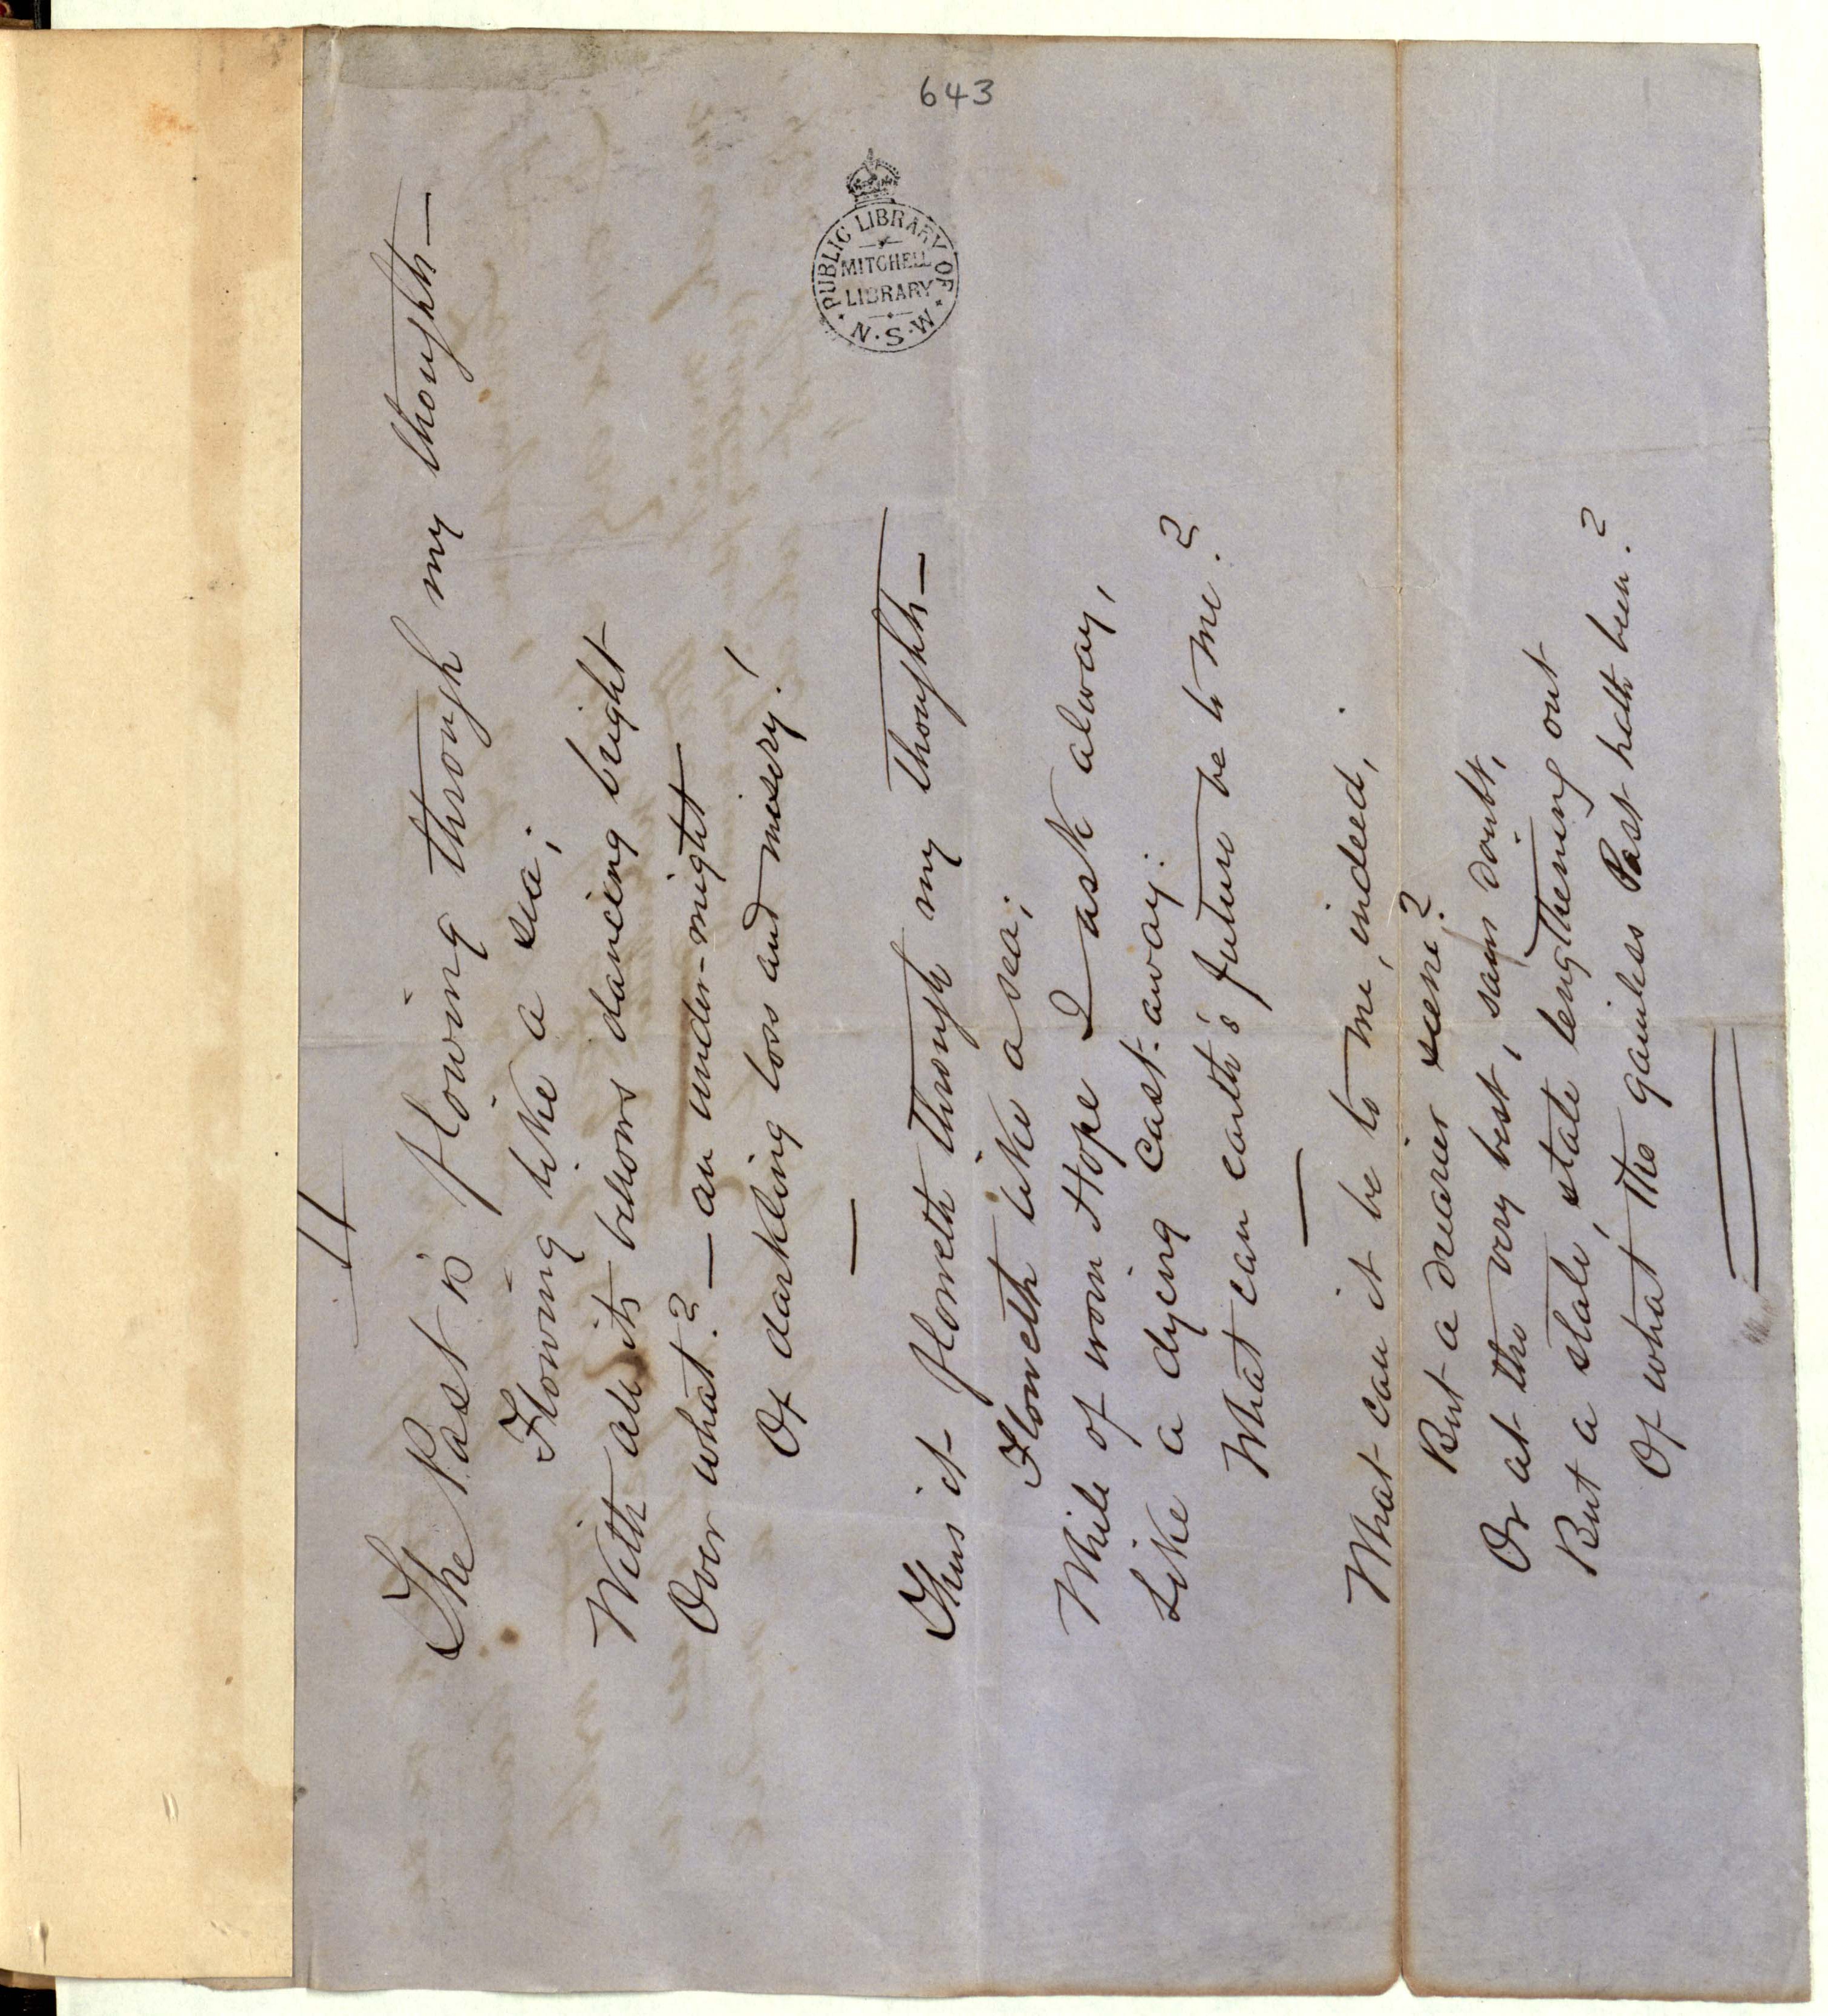 643
PUBLIC LIBRARY OF N.S.W
MITCHELL
LIBRARY
II
The Past is flowing through my thoughts—
Flowing like a sea;
With all its billows dancing bright
Over what?—an under-might
Of darkling loss and misery!
Thus it floweth through my thoughts—
Floweth like a sea;
While of worn Hope I ask alway,
Like a dying cast-away:
What can earth's future be to me?
What can it be to me, indeed,
But a drearier scene?
Or at the very best, sans doubt,
But a stale, state lengthening out
Of what the gainless Past hath been?